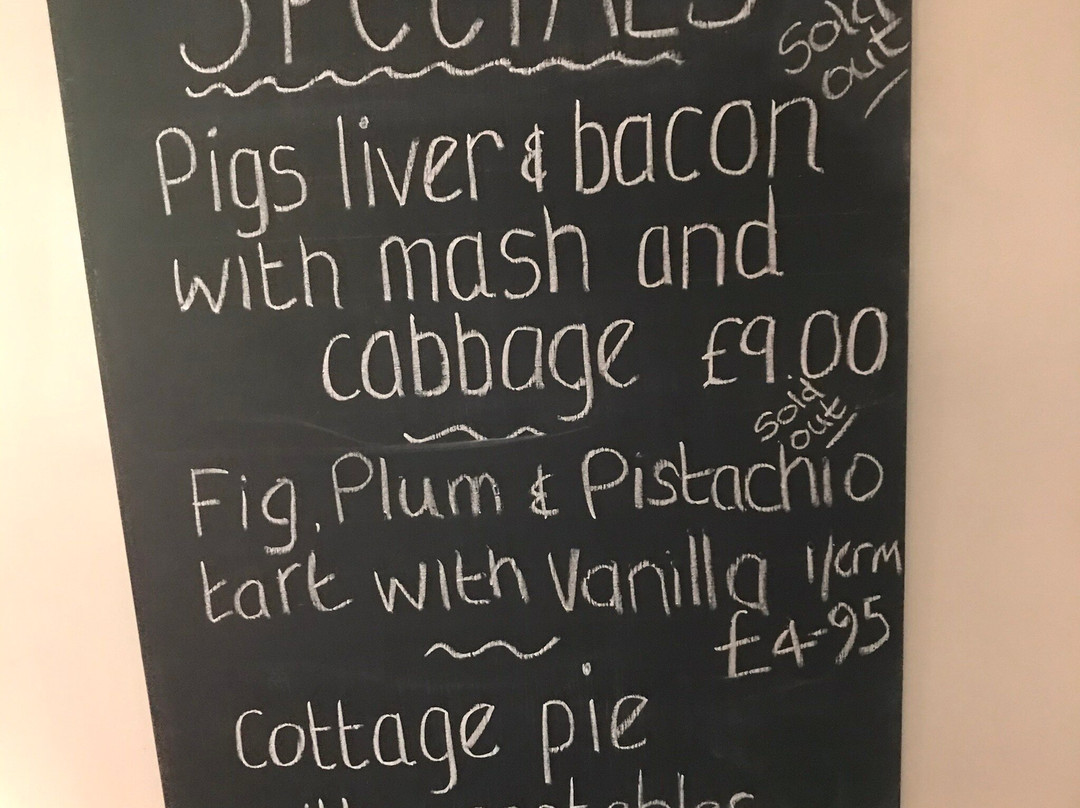 SPECIALS
Sold
out
Pigs liver & bacon
with mash and
cabbage £9.00
Sold
out
Fig, Plum & Pistachio
tart with Vanilla I/crm
£4-95
Cottage pie
with vegetables